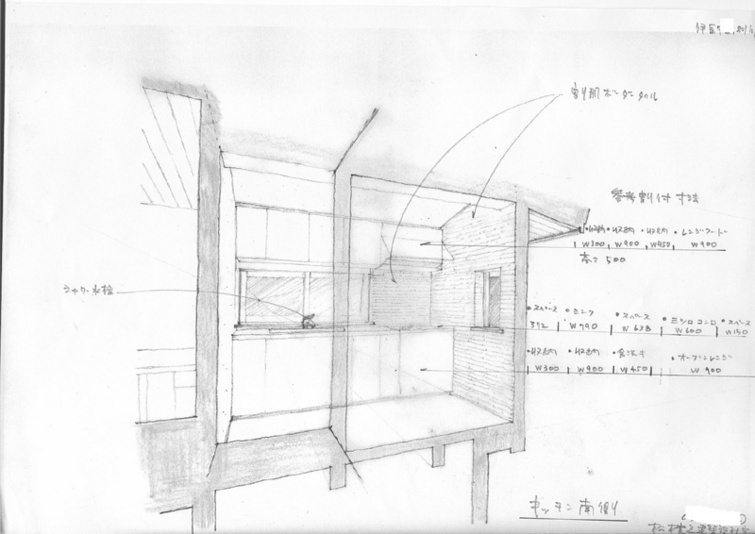 割肌ボーダータイル
割付寸法
・収納 ・収納 ・収納 ・レンジフード
W300 W900 W450 W900
高さ 500
シャワー水栓
・スペース ・シンク ・スペース ・三ツ口コンロ ・スペース
372 W790 W638 W600 W150
・収納 ・収納 ・食洗キ ・オーブンレンジ
W300 W900 W450 W900
キッチン南側